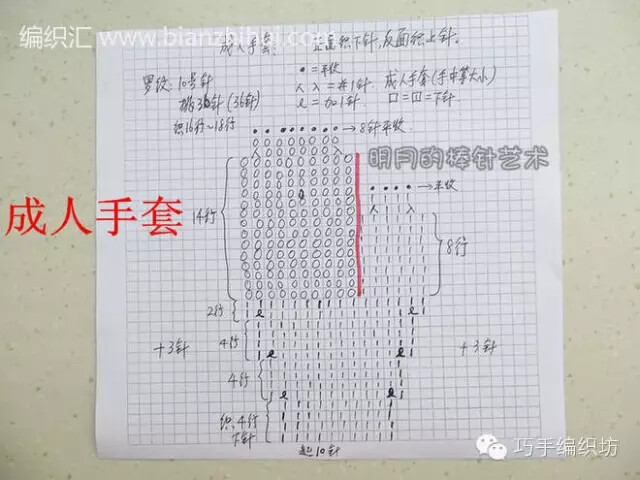 编织汇 www.bianzhihui.com
成人手套: 正面织下针,反面织上针。
罗纹: 10号针
• = 平收
人 入 = 并1针
成人手套(手中等大小)
挑36针(36针)
ℓ = 加1针
口=田=下针
织16行~18行
→8针平收
明月的棒针艺术
→平收
成人手套
14行
8行
2行
4行
+3针
+3针
4行
织4行
下针
起10针
巧手编织坊